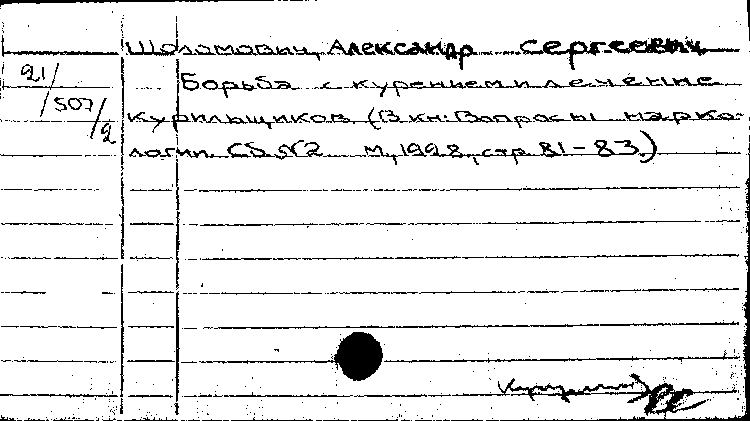 Шоломович, Александр Сергеевич
21/507/2
Борьба с курением и лечение
курильщиков. (В кн: Вопросы нарко-
логии. Сб. №2 М, 1928, стр. 81-83.)